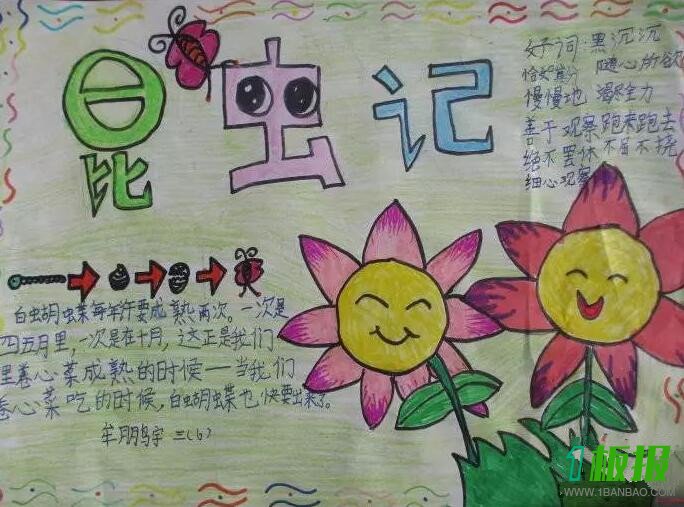 昆虫记
好词:黑沉沉
恰如其分 随心所欲
慢慢地 竭尽全力
善于观察跑来跑去
绝不罢休不屈不挠
细心观察
白蝴蝶每年要成熟两次。一次是
四五月里,一次是在十月,这正是我们
里卷心菜成熟的时候—当我们
卷心菜吃的时候,白蝴蝶也快要出来了。
牟朋鸟宇 三(6)
1板报
WWW.1BANBAO.COM